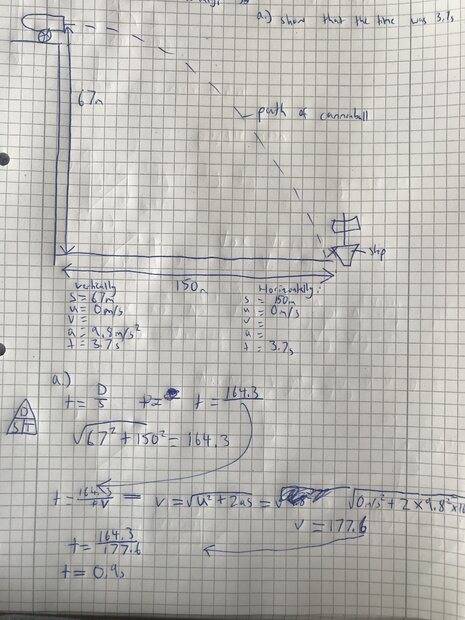 a.) show that the time was 3.7s
67m
path of cannonball
ship
150m
Vertically
s = 67m
u = 0m/s
v =
a = 9.8m/s²
t = 3.7s
Horizontally:
s = 150m
u = 0m/s
v =
a =
t = 3.7s
a.)
D
S T
t = D/S t = 164.3
√67² + 150² = 164.3
t = 164.3/v = v = √u² + 2as = √0m/s² + 2 × 9.8² ×
v = 177.6
t = 164.3/177.6
t = 0.9s